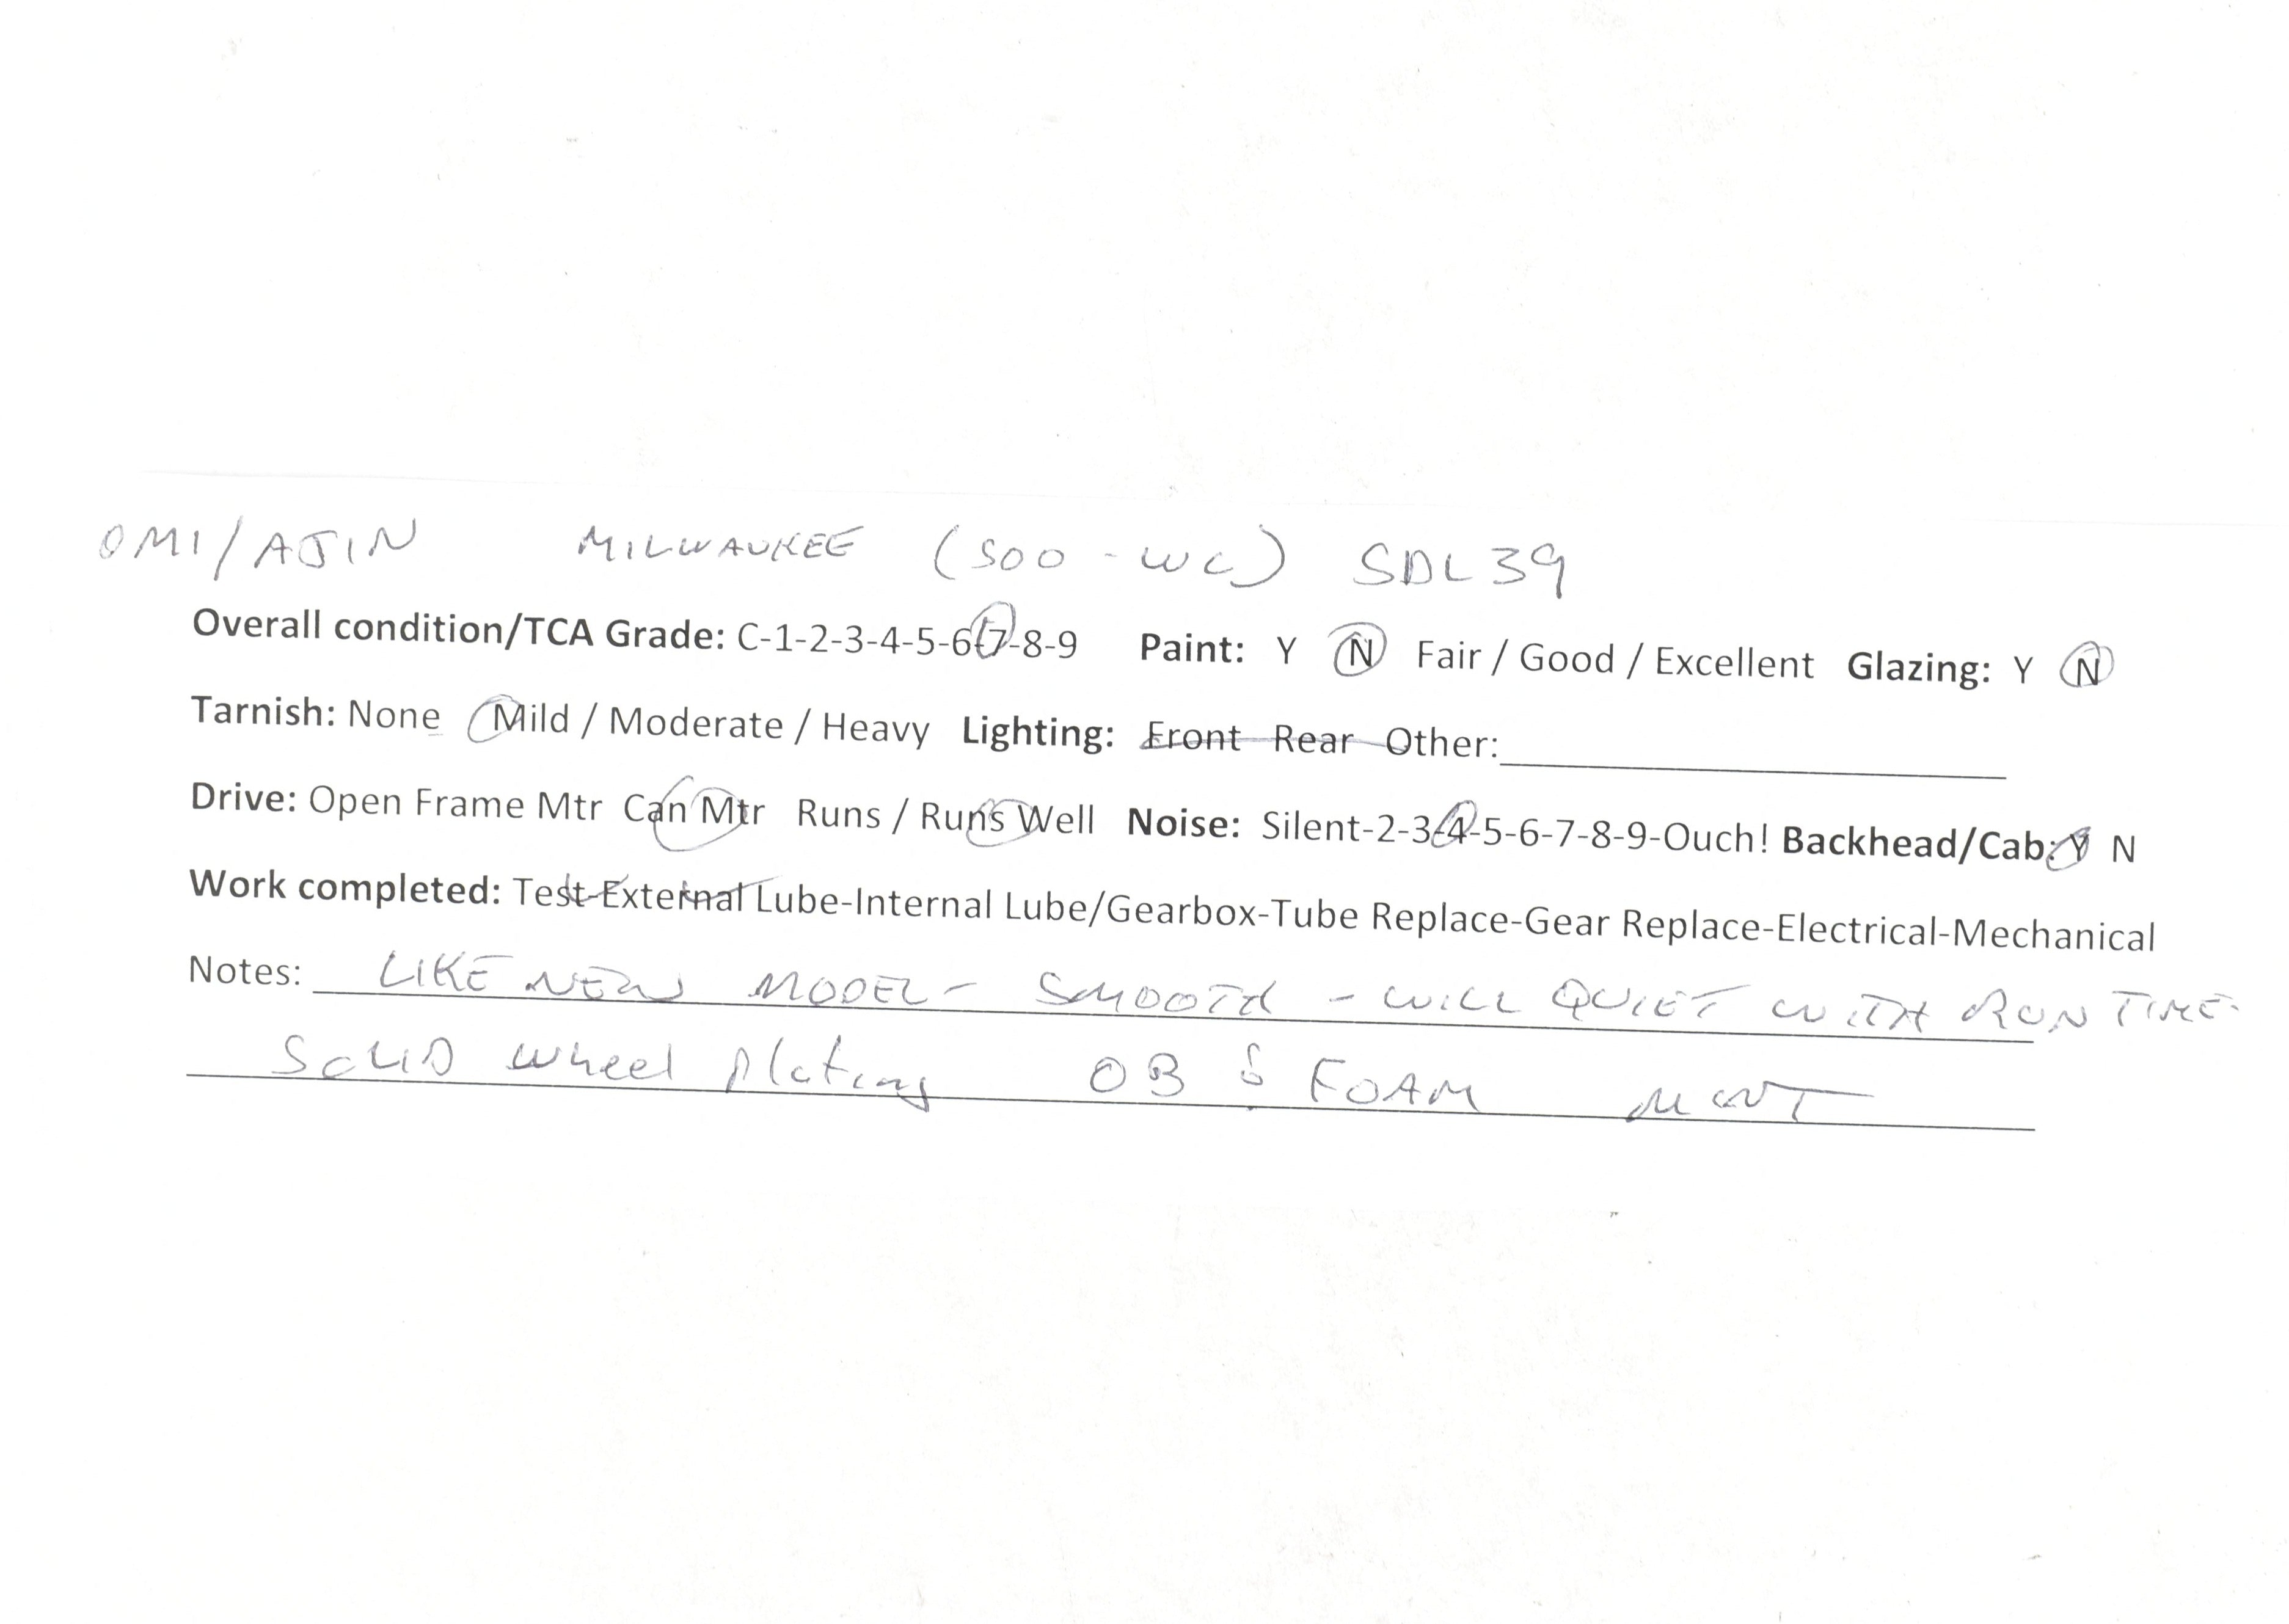 OMI/AJIN MILWAUKEE (SOO-WC) SDL39
Overall condition/TCA Grade: C-1-2-3-4-5-6-7-8-9 Paint: Y N Fair / Good / Excellent Glazing: Y N
Tarnish: None / Mild / Moderate / Heavy Lighting: Front Rear Other:
Drive: Open Frame Mtr Can Mtr Runs / Runs Well Noise: Silent-2-3-4-5-6-7-8-9-Ouch! Backhead/Cab: Y N
Work completed: Test-External Lube-Internal Lube/Gearbox-Tube Replace-Gear Replace-Electrical-Mechanical
Notes: LIKE NEW MODEL - SMOOTH - WILL QUIET WITH RUN TIME.
SOLID Wheel Plating OB & FOAM MWT